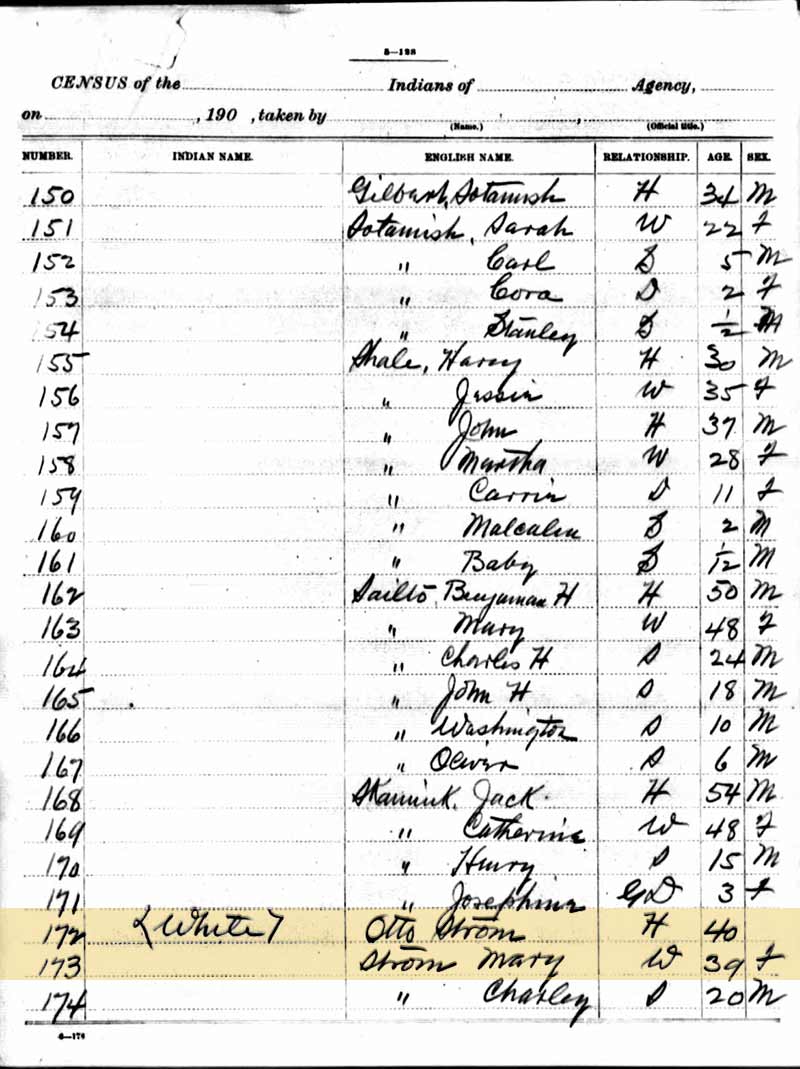 5—128
CENSUS of the Indians of Agency,
on , 190 , taken by ,
(Name.) (Official title.)
NUMBER. INDIAN NAME. ENGLISH NAME. RELATIONSHIP. AGE. SEX.
150 Gilbert, Sotamish H 34 M
151 Sotamish, Sarah W 22 F
152 " Carl S 5 M
153 " Cora D 2 F
154 " Stanley S 1/2 M
155 Shale, Harry H 30 M
156 " Jessie W 35 F
157 " John H 37 M
158 " Martha W 28 F
159 " Carrie D 11 F
160 " Malcalm S 2 M
161 " Baby S 1/12 M
162 Sailto, Benjaman H H 50 M
163 " Mary W 48 F
164 " Charles H S 24 M
165 " John H S 18 M
166 " Washington S 10 M
167 " Oliver S 6 M
168 Skamink, Jack H 54 M
169 " Catherine W 48 F
170 " Henry S 15 M
171 " Josephine GD 3 F
172 (White) Otto Strom H 40
173 Strom Mary W 39 F
174 " Charley S 20 M